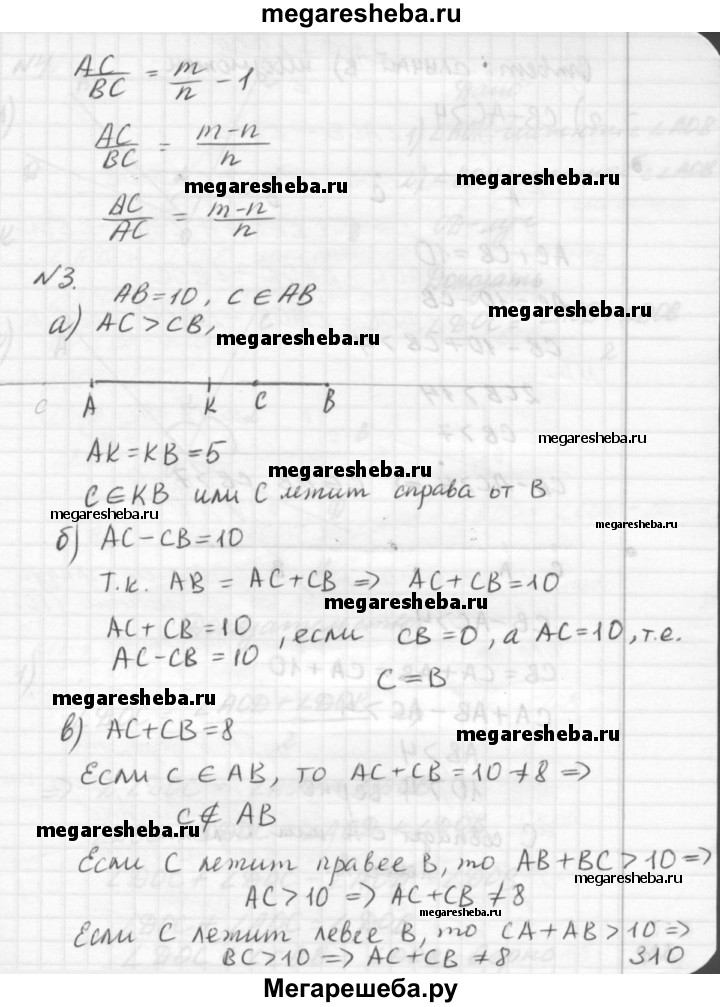 megaresheba.ru
AC/BC = m/n - 1
AC/BC = (m-n)/n
megaresheba.ru megaresheba.ru
AC/AC = (m-n)/n
N3.
AB=10, C∈AB
megaresheba.ru
а) AC>CB,
megaresheba.ru
A K C B
AK=KB=5
megaresheba.ru
megaresheba.ru
C∈KB или C лежит справа от B
megaresheba.ru
megaresheba.ru
б) AC-CB=10
Т.к. AB = AC+CB ⇒ AC+CB=10
megaresheba.ru
AC+CB=10
AC-CB=10 , если CB=0, а AC=10, т.е.
C=B
megaresheba.ru
в) AC+CB=8
megaresheba.ru
Если C∈AB, то AC+CB=10≠8 ⇒
C∉AB
megaresheba.ru
Если C лежит правее B, то AB+BC>10 ⇒
megaresheba.ru
AC>10 ⇒ AC+CB≠8
megaresheba.ru
Если C лежит левее B, то CA+AB>10 ⇒
BC>10 ⇒ AC+CB≠8
310
Мегарешеба.ру